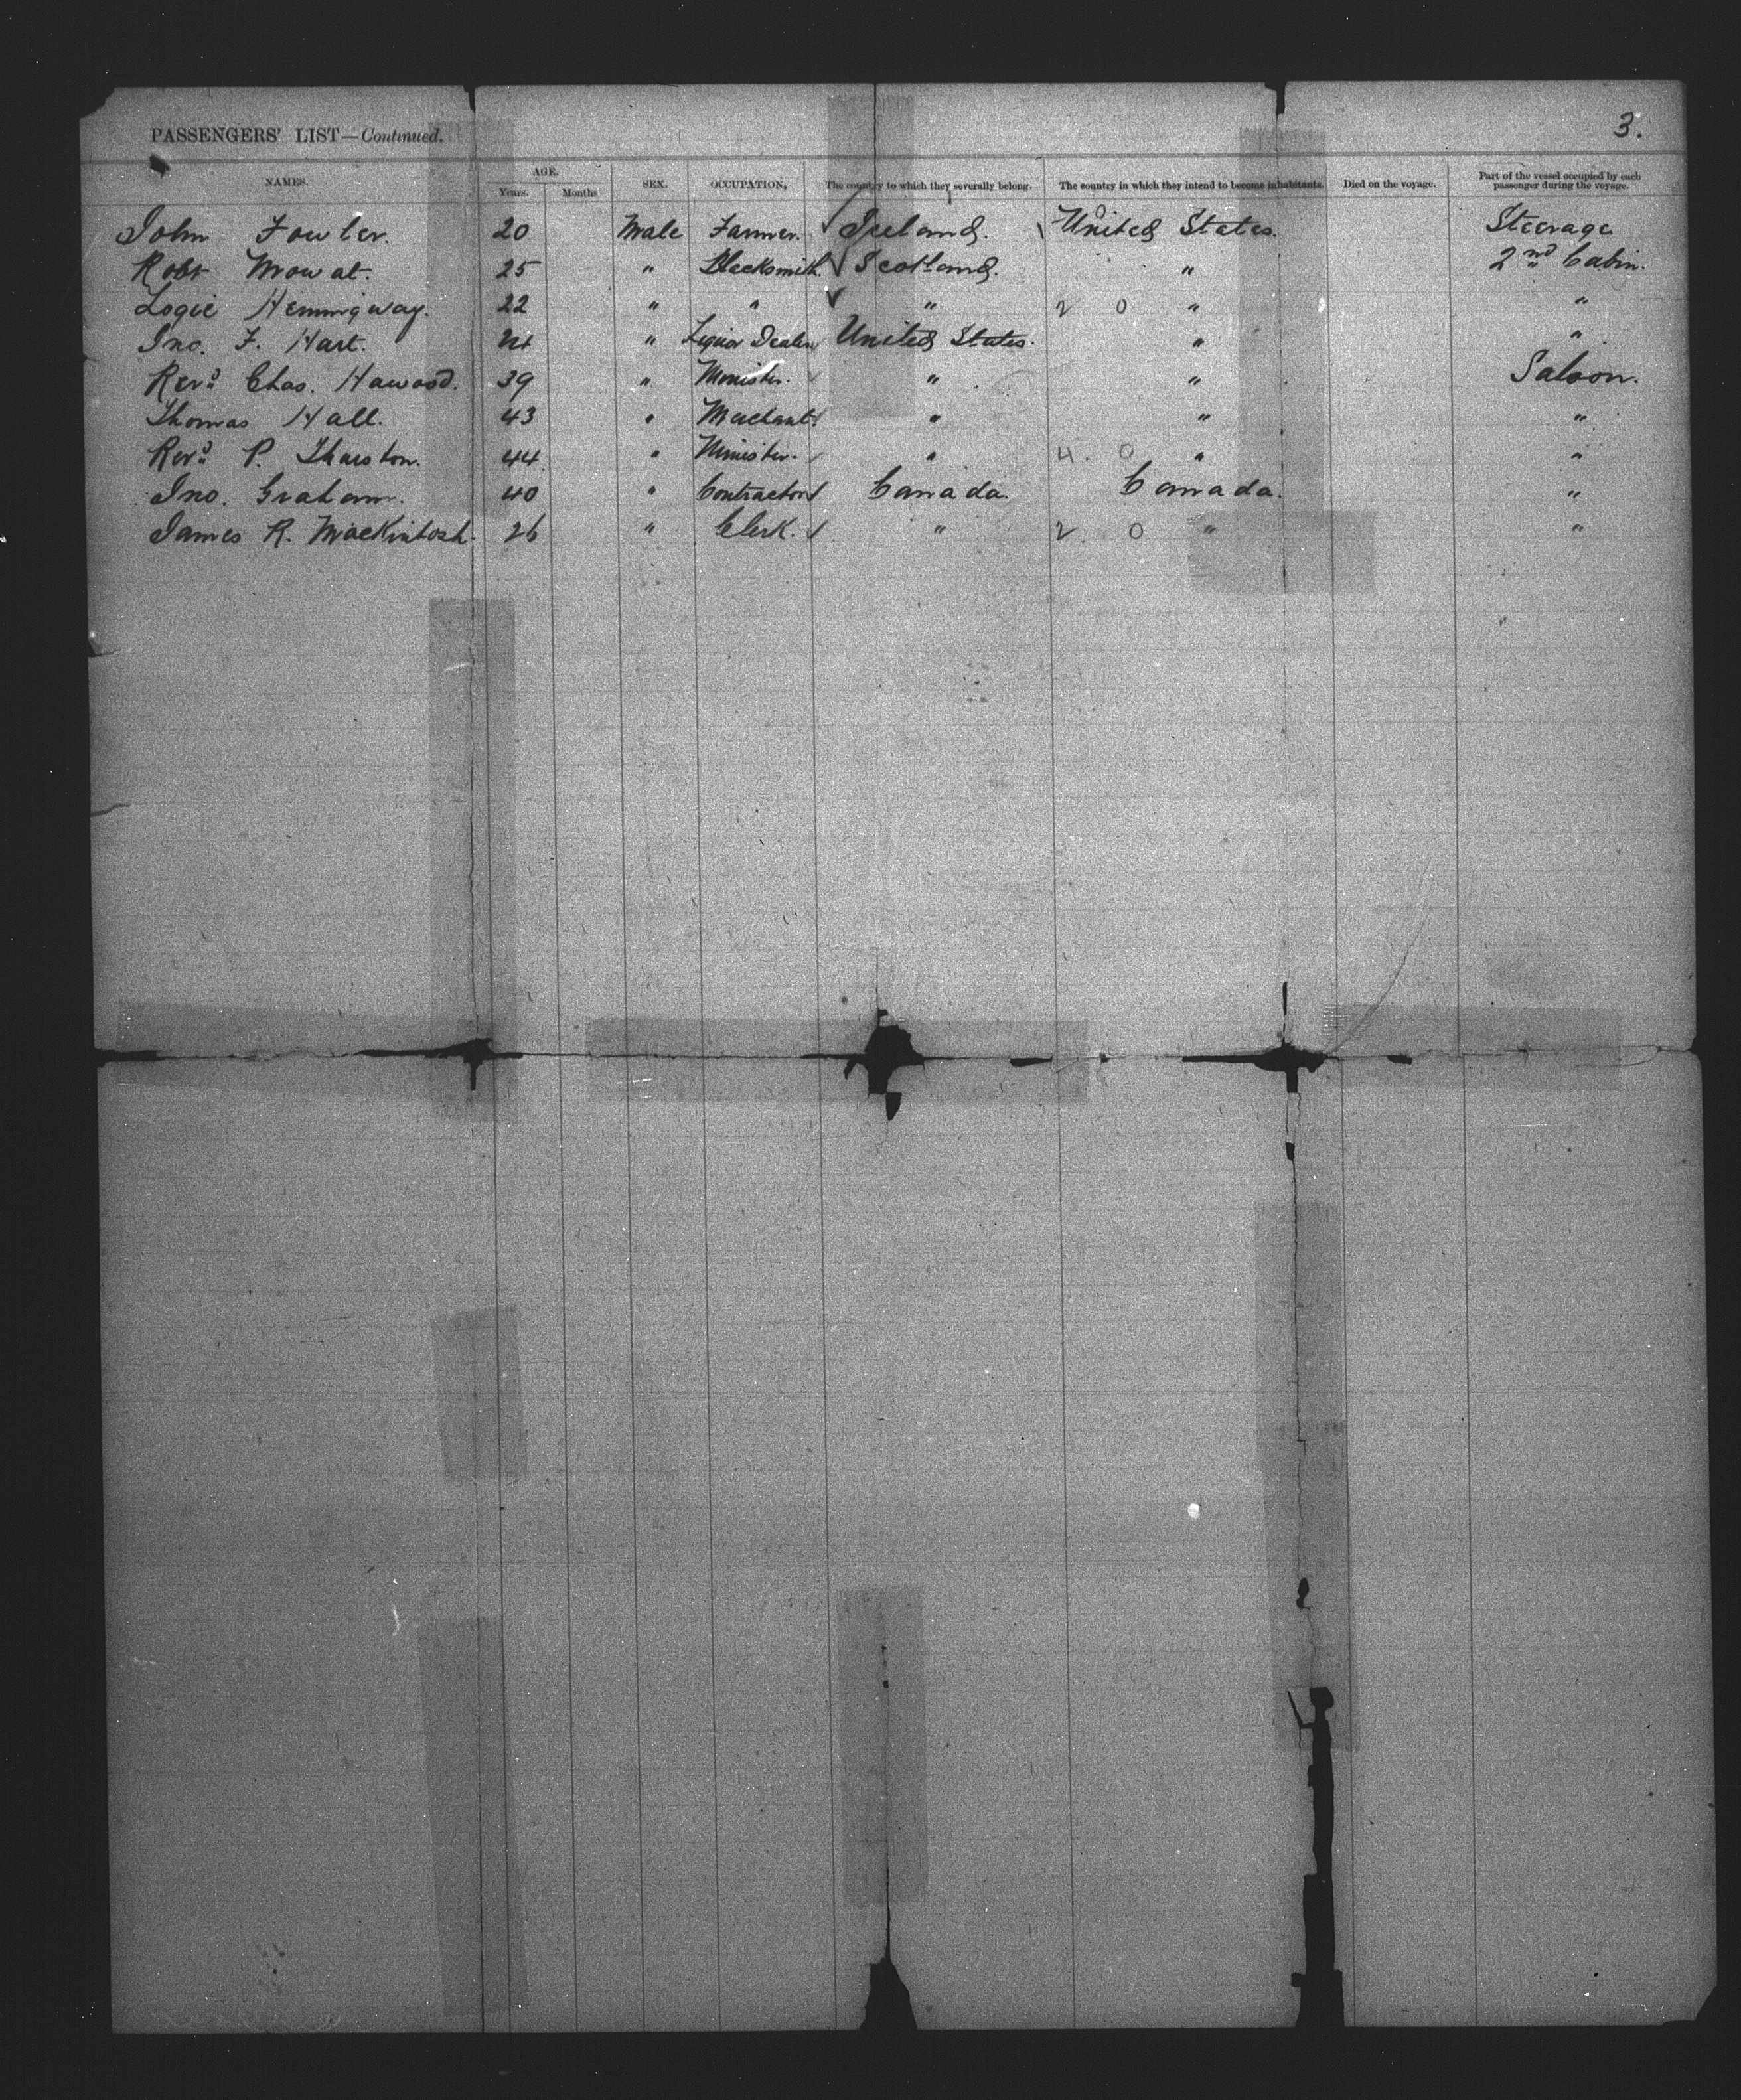 3.
PASSENGERS' LIST—Continued.
NAMES. AGE. Years. Months SEX. OCCUPATION, The country to which they severally belong. The country in which they intend to become inhabitants. Died on the voyage. Part of the vessel occupied by each passenger during the voyage.
John Fowler. 20 Male Farmer. Ireland. United States. Steerage
Robt Mowat. 25 " Blacksmith. Scotland. " 2nd Cabin.
Logie Hemmigway. 22 " " " 2 0 " "
Jno. F. Hart. " Liquor Dealer United States. " "
Revd Chas. Hawood. 39 " Minister. " " Saloon.
Thomas Hall. 43 " Merchant. " " "
Revd P. Thurston. 44 " Minister. " 4 0 " "
Jno. Graham. 40 " Contractor Canada. Canada. "
James R. Mackintosh. 26 " Clerk. " 2 0 " "